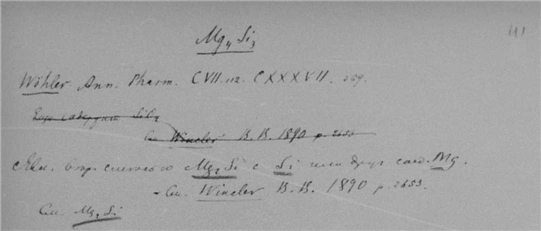 Mg₄Si₃
41
Wöhler Ann. Pharm. CVII. 112. CXXXVII. 369.
См. Winkler B. B. 1890 p. 2653
Mg₂Si с Si или друг. соед. Mg.
– См. Winkler B. B. 1890 p. 2653.
См. Mg₂Si